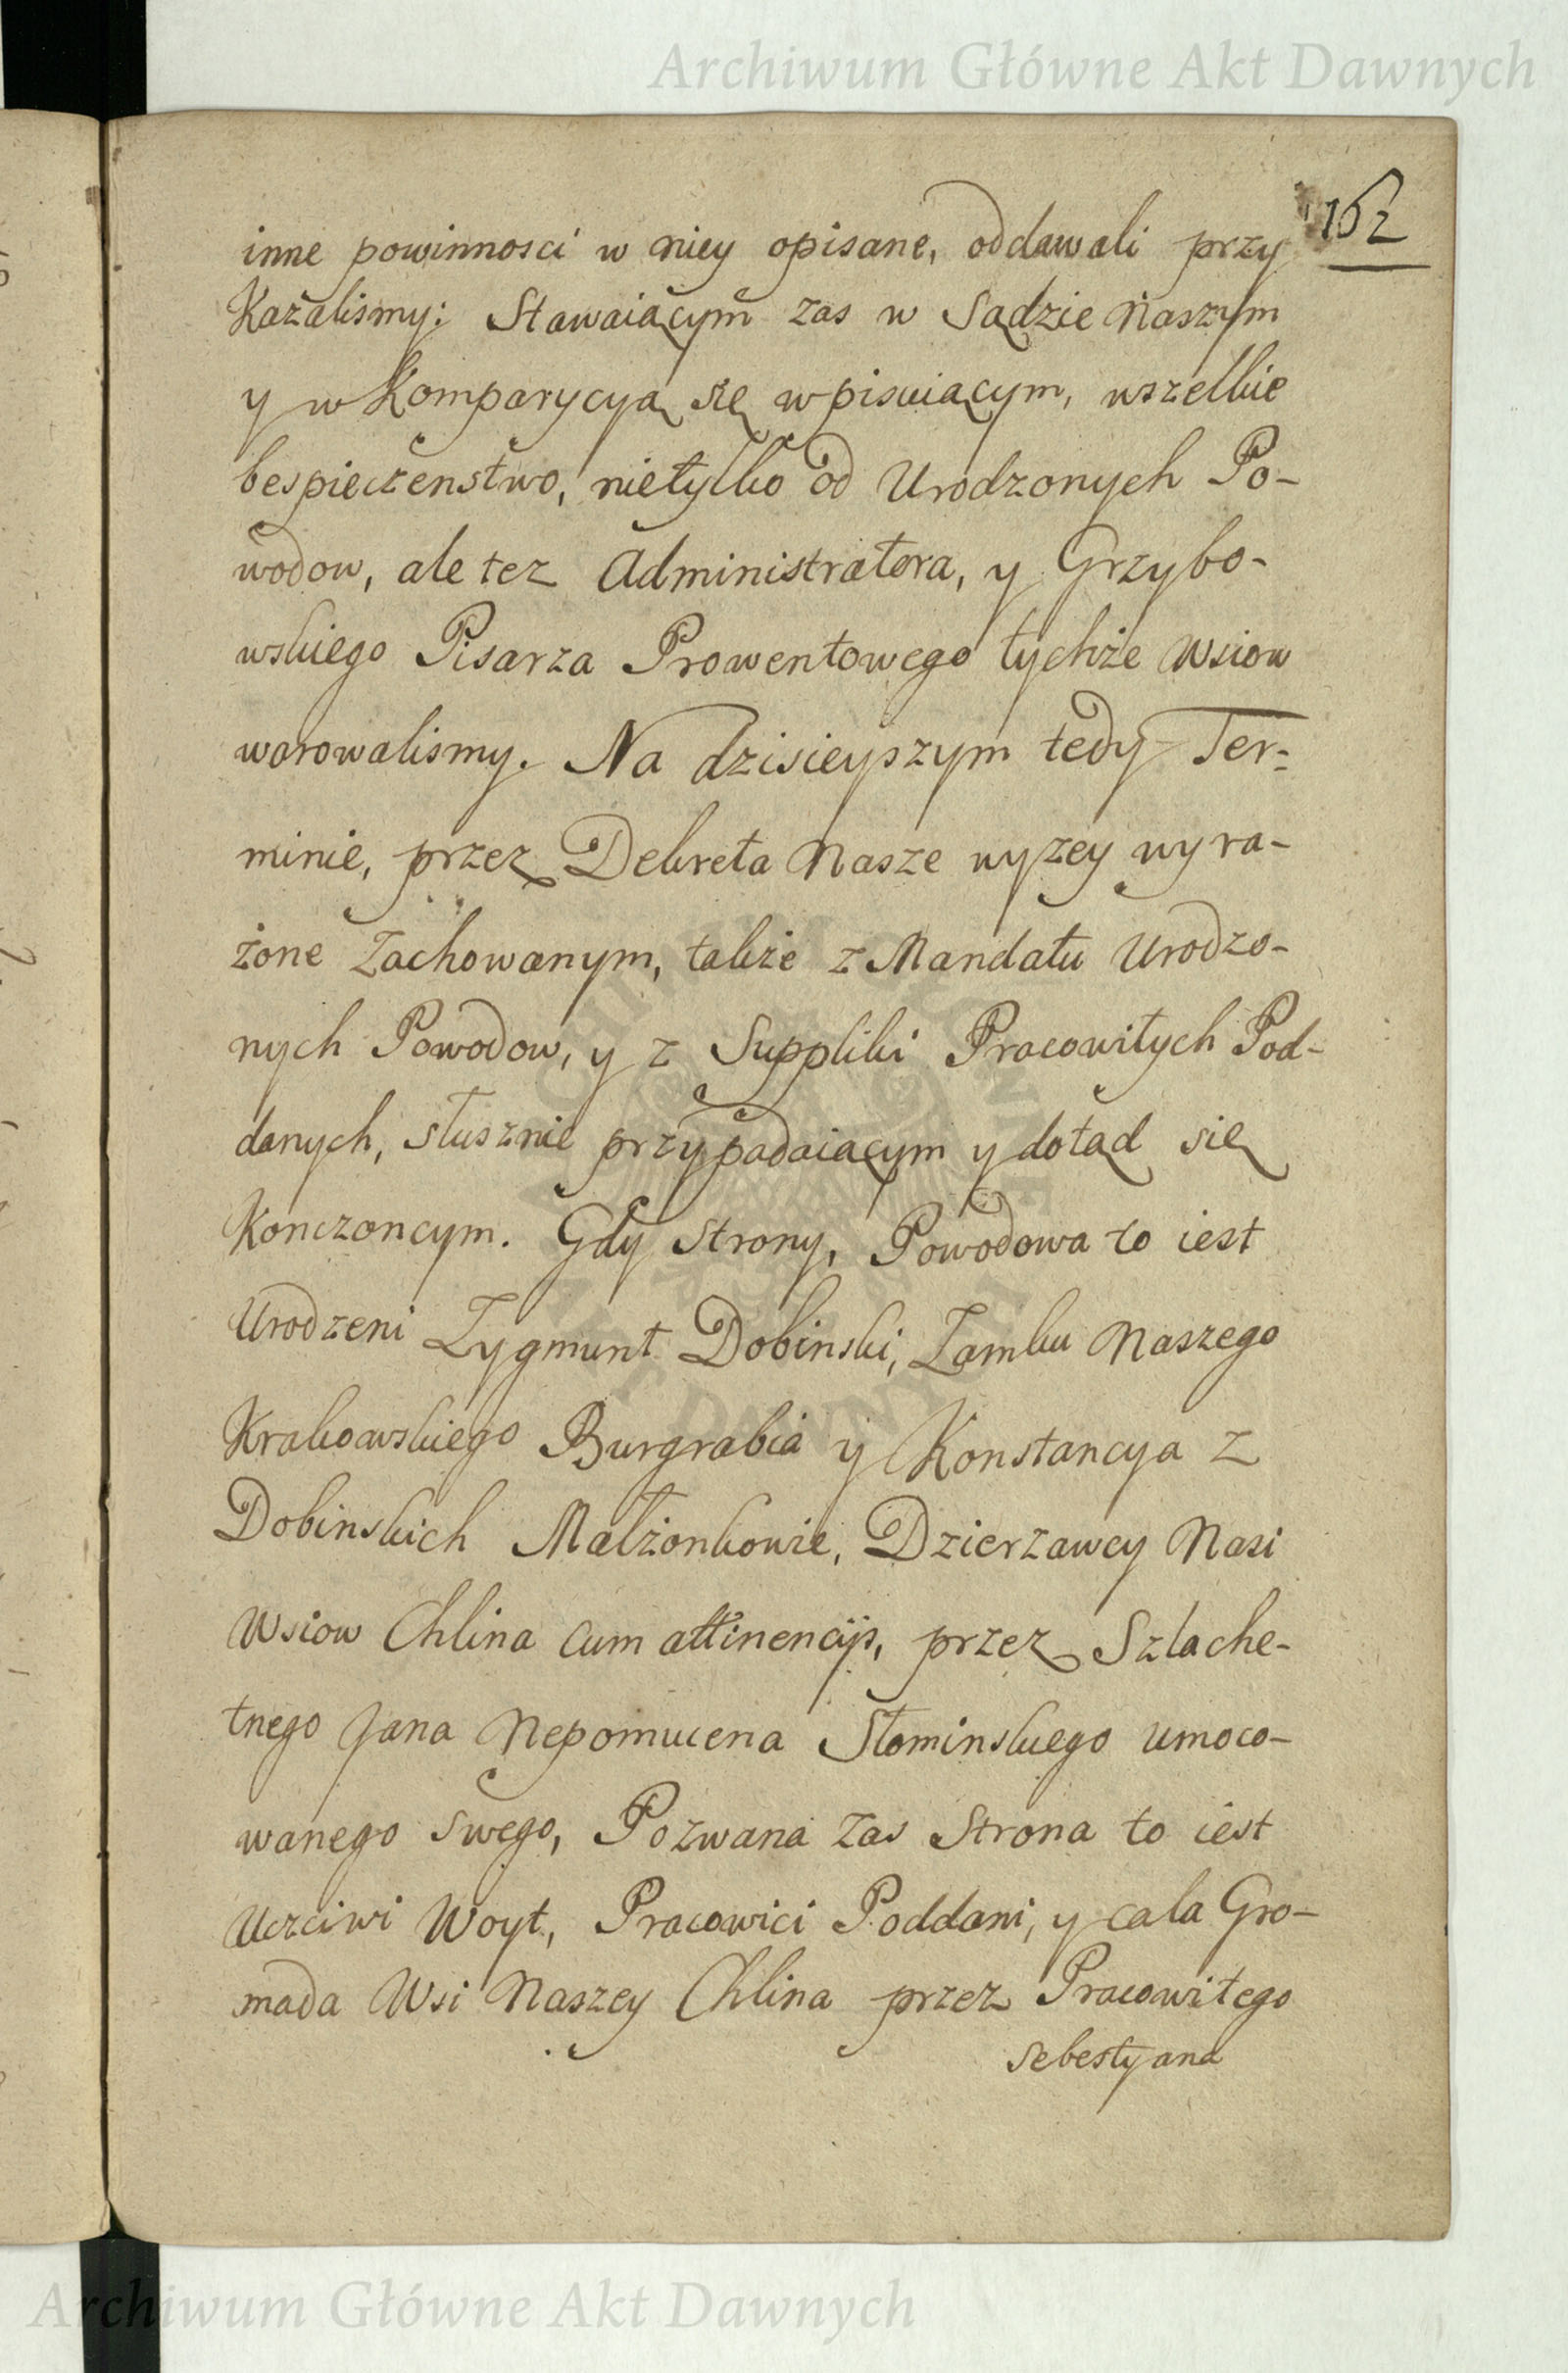 Archiwum Główne Akt Dawnych
162
inne powinnosci w niey opisane, oddawali przy
Kazalismy: Stawaiącym zas w Sądzie Naszym
y w Komparycyą się wpisuiącym, wszelkie
bespieczenstwo, nietylko od Urodzonych Po-
wodow, ale tez Administratora, y Grzybo-
wskiego Pisarza Prowentowego tychże Wsiow
warowalismy. Na dzisieyszym tedy Ter-
minie, przez Dekreta Nasze wyzey wyra-
żone Zachowanym, także z Mandatu Urodzo-
nych Powodow, y z Suppliki Pracowitych Pod-
danych, słusznie przypadaiącym y dotąd się
Konczoncym. Gdy Strony, Powodowa to iest
Urodzeni Zygmunt Dobinski, Zamku Naszego
Krakowskiego Burgrabia y Konstancya z
Dobinskich Małżonkowie, Dzierzawcy Nasi
Wsiow Chlina cum attinencijs, przez Szlache-
tnego Jana Nepomucena Słominskiego umoco-
wanego swego, Pozwana zas Strona to iest
Uczciwi Woyt, Pracowici Poddani, y cala Gro-
mada Wsi Naszey Chlina przez Pracowitego
Sebestyana
Archiwum Główne Akt Dawnych